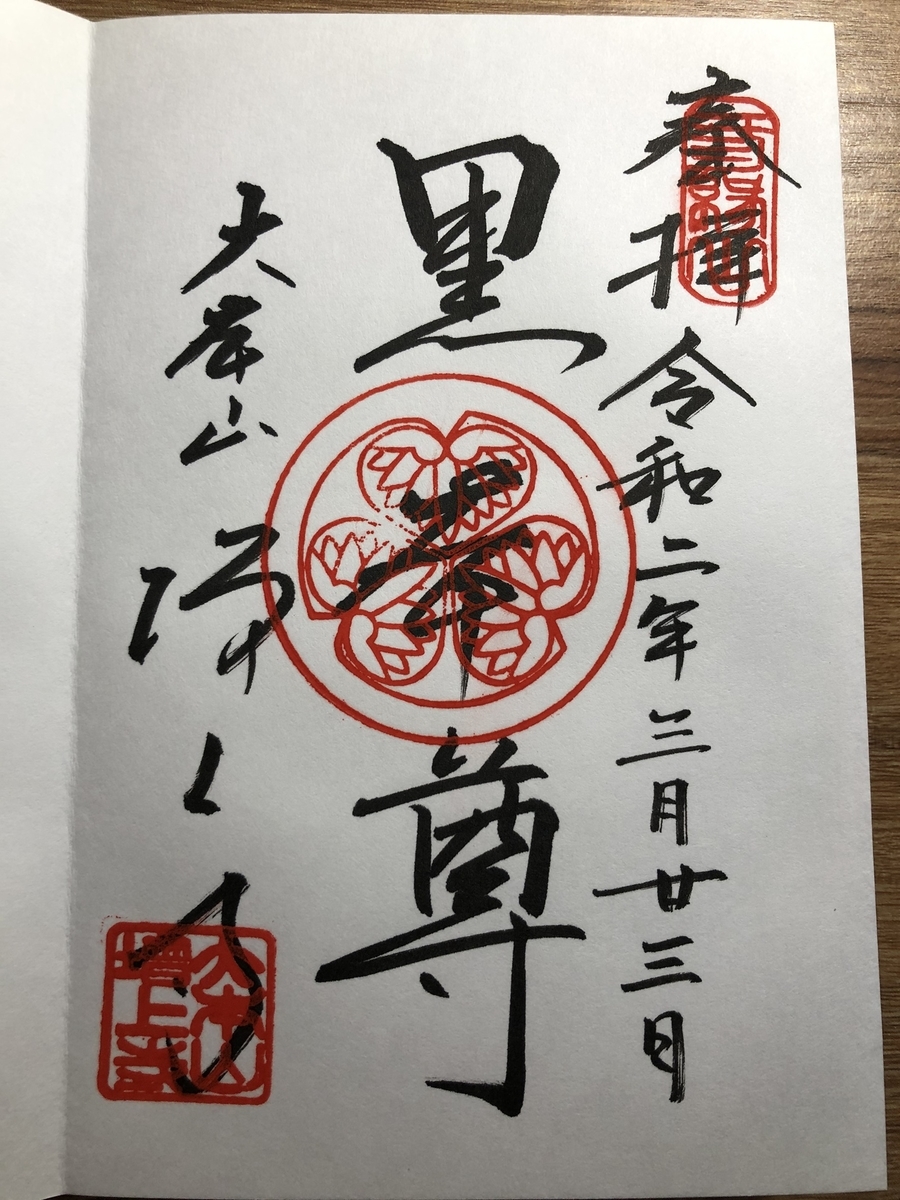 奉拝 令和二年三月廿三日
黒本尊
大本山 増上寺
大本山
増上寺